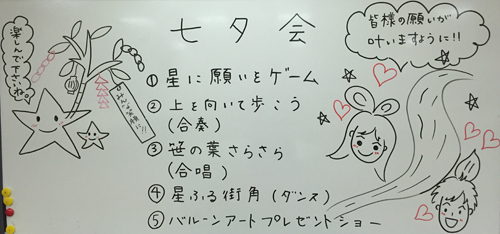 七夕会
楽しんで
下さいね。
みんな笑顔に!!
皆様の願いが
叶いますように!!
① 星に願いをゲーム
② 上を向いて歩こう
(合奏)
③ 笹の葉さらさら
(合唱)
④ 星ふる街角 (ダンス)
⑤ バルーンアートプレゼントショー